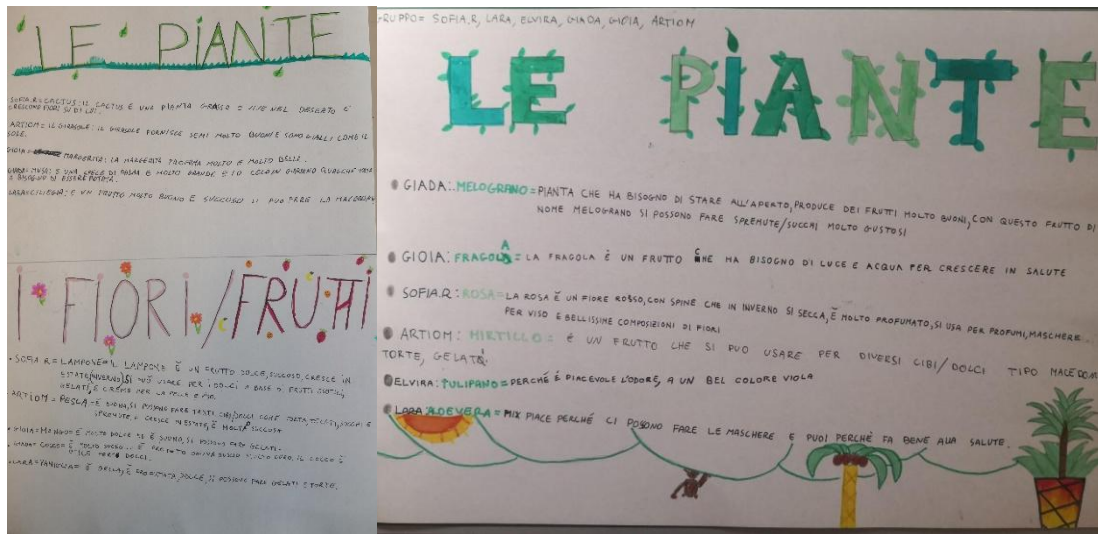 LE PIANTE
SOFIA.R= CACTUS: IL CACTUS È UNA PIANTA GRASSA E VIVE NEL DESERTO E
CRESCONO FIORI SU DI LUI.
ARTIOM= IL GIRASOLE: IL GIRASOLE FORNISCE SEMI MOLTO BUONI E SONO GIALLI COME IL
SOLE.
GIOIA: MARGERITA: LA MARGERITA PROFUMA MOLTO E MOLTO BELLA.
E UNA SPECE DI PALMA E MOLTO GRANDE E IO COLGO IN GIARDINO QUALCHE
E BISOGNO DI ESSERE POTATA.
LARA: CILIEGIA: È UN FRUTTO MOLTO BUONO E SUCCOSO SI PUÒ FARE LA
I FIORI/FRUTTI
SOFIA R= LAMPONE= IL LAMPONE È UN FRUTTO DOLCE, SUCCOSO, CRESCE IN
ESTATE/INVERNO, SI PUÒ USARE PER I DOLCI A BASE DI FRUTTI
GELATI, E CREME PER LA PELLE
ARTIOM= PESCA= È BUONA, SI POSSONO FARE COME TORTA, SUCCHI E
SPREMUTE E CRESCE IN ESTATE, È MOLTO SUCCOSA
GIOIA= MANGO= È MOLTO DOLCE ED È BUONO, SI POSSONO FARE GELATI.
GIADA= COCCO= È MOLTO IL COCCO È
DOLCI.
LARA= VANIGLIA= È BELLA, È PROFUMATA, DOLCE, SI POSSONO FARE GELATI E TORTE.
GRUPPO= SOFIA.R, LARA, ELVIRA, GIADA, GIOIA, ARTIOM
LE PIANTE
GIADA: MELOGRANO= PIANTA CHE HA BISOGNO DI STARE ALL'APERTO, PRODUCE DEI FRUTTI MOLTO BUONI, CON QUESTO FRUTTO DI
NOME MELOGRANO SI POSSONO FARE SPREMUTE/SUCCHI MOLTO GUSTOSI
GIOIA: FRAGOLA= LA FRAGOLA È UN FRUTTO CHE HA BISOGNO DI LUCE E ACQUA PER CRESCERE IN SALUTE
SOFIA.R: ROSA= LA ROSA È UN FIORE ROSSO, CON SPINE CHE IN INVERNO SI SECCA, È MOLTO PROFUMATO, SI USA PER PROFUMI, MASCHERE
PER VISO E BELLISSIME COMPOSIZIONI DI FIORI
ARTIOM: MIRTILLO= È UN FRUTTO CHE SI PUO USARE PER DIVERSI CIBI/DOLCI TIPO MACEDONIA
TORTE, GELATI
ELVIRA: TULIPANO= PERCHÉ È PIACEVOLE L'ODORE, A UN BEL COLORE VIOLA
LARA: ALOEVERA= MIX PIACE PERCHÉ CI POSONO FARE LE MASCHERE E PUOI PERCHÈ FA BENE ALLA SALUTE.